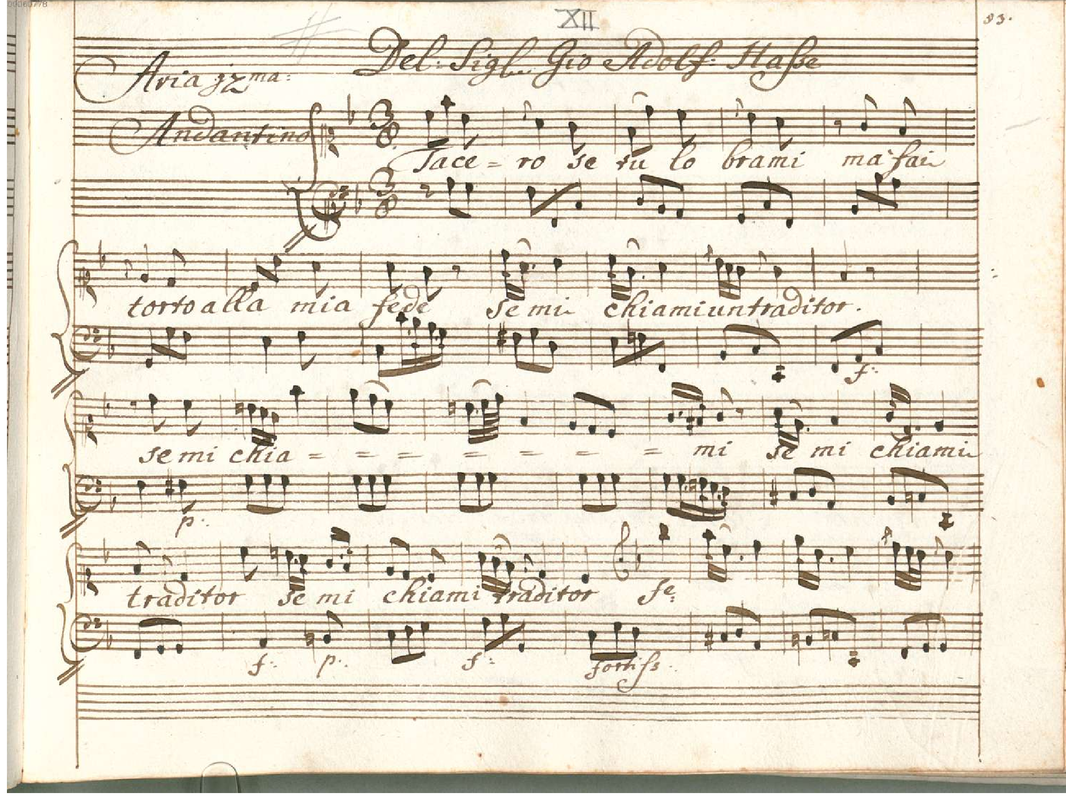 00080778
XII
83.
Aria 12ma:
Del: Sigl. Gio Adolf: Hasse
Andantino
Tace = ro se tu lo brami ma fai
torto alla mia fede se mi chiami un traditor.
f:
se mi chia = = = = = = = = mi se mi chiami
p:
traditor se mi chiami traditor
f: p: f: fortiss: